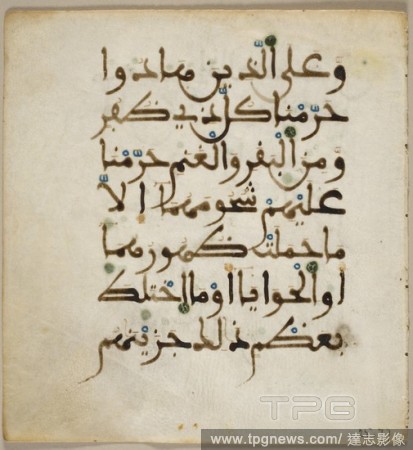 وعلى الذين هادوا
حرّمنا كلّ ذي ظفر
ومن البقر والغنم حرّمنا
عليهم شحومهما الاّ
ما حملت ظهورهما
او الحوايا او ما اختلط
بعظم ذلك جزينهم
TPG
www.tpgnews.com/ 達志影像